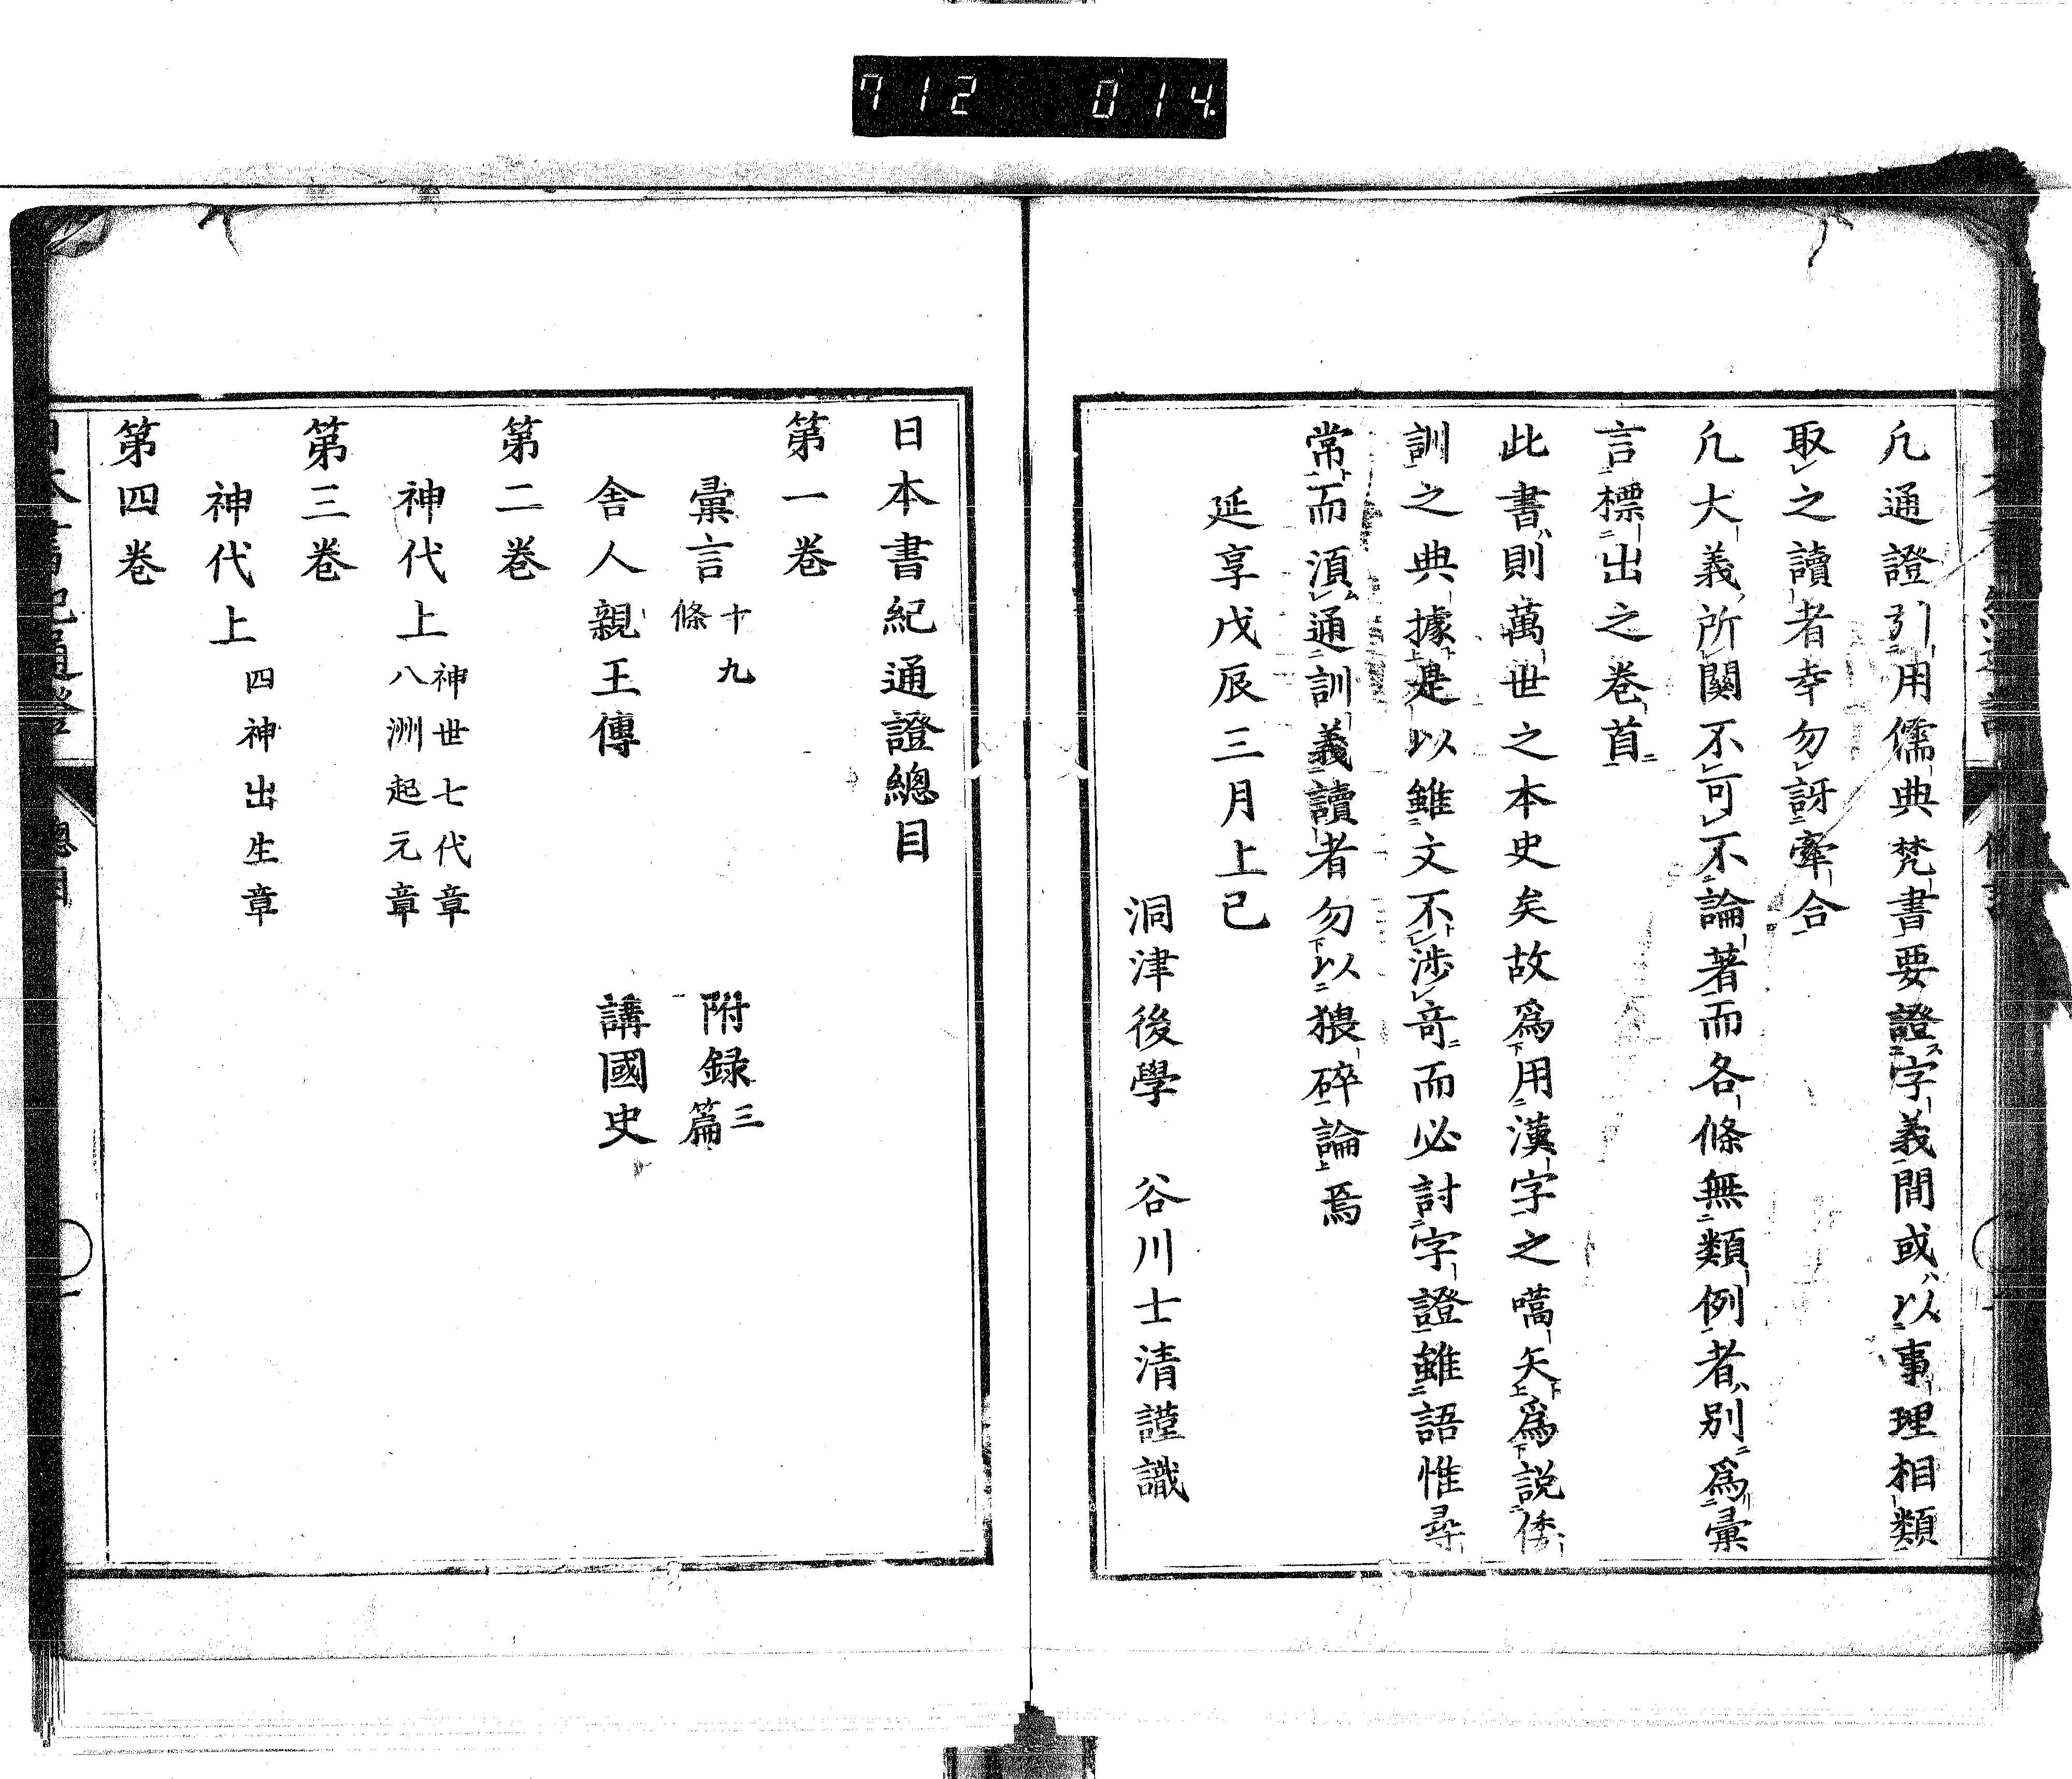 712 014
凢通證引用儒典梵書要證字義間或以事理相類
取之讀者幸勿訝牽合
凢大義所關不可不論著而各條無類例者別爲彙
言標出之卷首
此書則萬世之本史矣故爲用漢字之嚆矢爲説倭
訓之典據是以雖文不渉竒而必討字證雖語惟尋
常而湏通訓義讀者勿以猥碎論焉
延享戊辰三月上巳
洞津後學 谷川士清謹識
日本書紀通證總目
第一卷
彙言十九條 附録三篇
舎人親王傳 講國史
第二卷
神代上 神世七代章 八洲起元章
第三卷
神代上 四神出生章
第四卷
日本書紀通證 總目 一